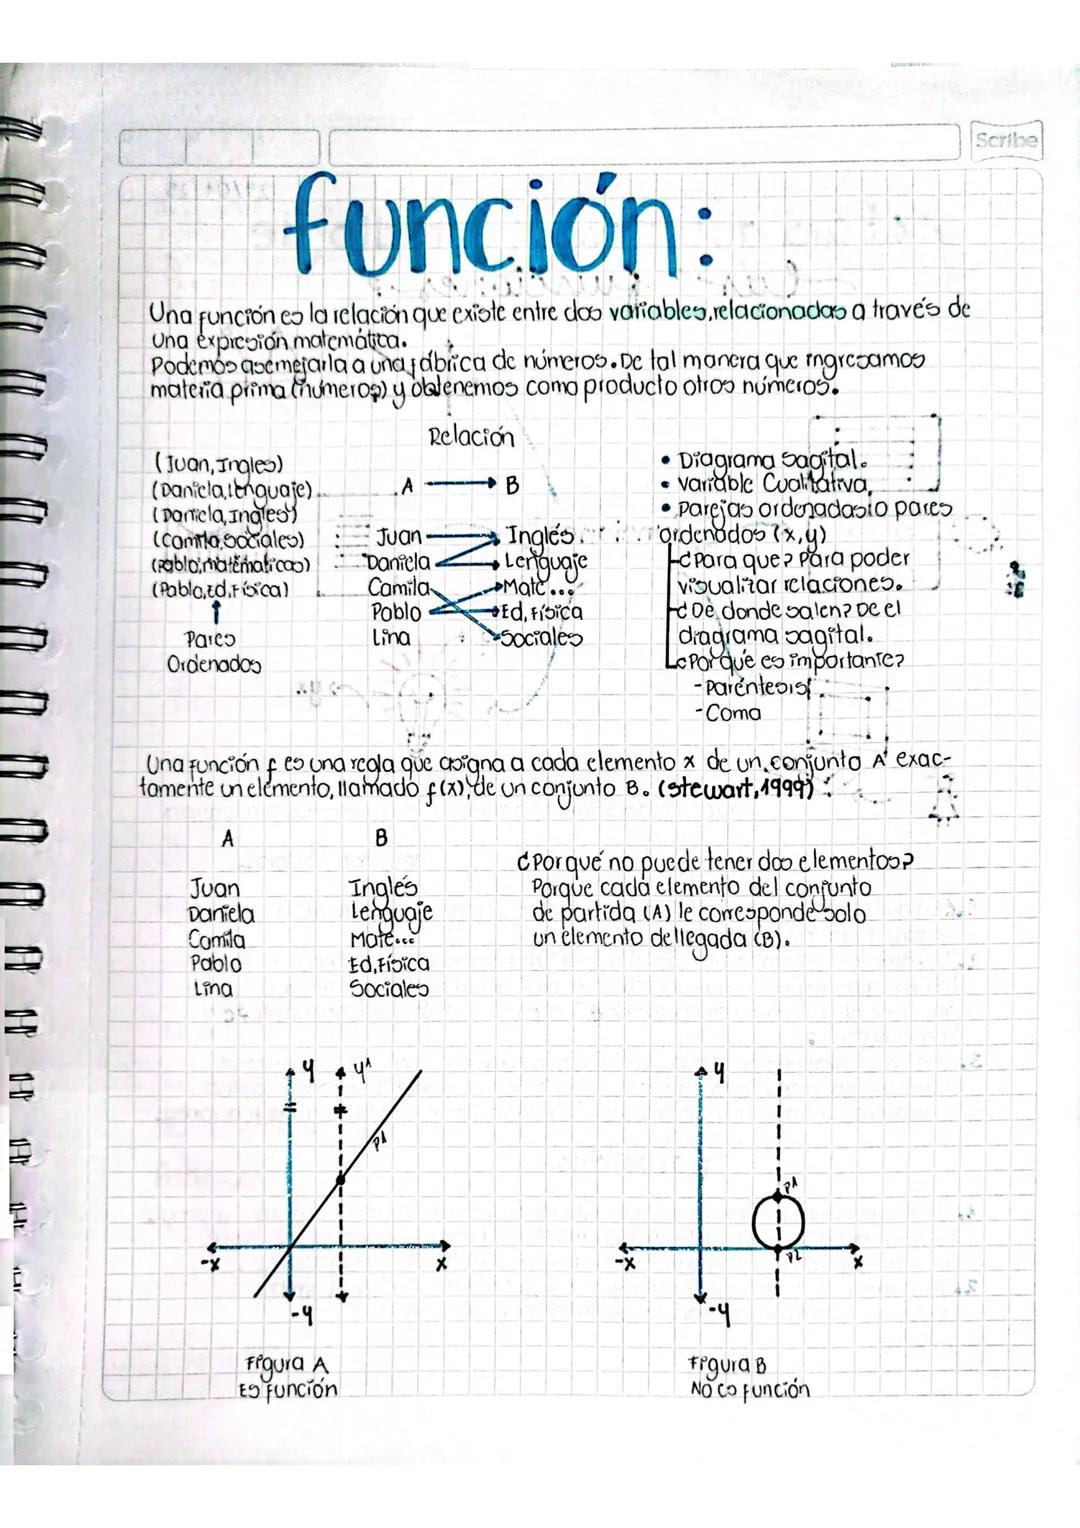 Scribe
función:
Una función es la relación que existe entre dos variables, relacionadas a través de
una expresión matemática.
Podemos asemejarla a una fábrica de números. De tal manera que ingresamos
materia prima (números) y obtenemos como producto otros números.
Relación
(Juan, Ingles)
(Daniela, lenguaje)
(Daniela, Ingles)
(Camila, sociales)
(Pablo, matemáticas)
(Pablo, Ed, Física)
Pares
Ordenados
A B
Juan Inglés
Daniela Lenguaje
Camila Mate...
Pablo Ed, Física
Lina Sociales
• Diagrama sagital.
• Variable Cualitativa,
• Parejas ordenadas o pares
ordenados (x,y)
¿Para que? Para poder
visualizar relaciones.
¿De donde salen? De el
diagrama sagital.
¿Por qué es importante?
-Paréntesis
-Coma
Una función f es una regla que asigna a cada elemento x de un conjunto A exac-
tamente un elemento, llamado f(x), de un conjunto B. (Stewart, 1999)
A B
Juan Inglés
Daniela Lenguaje
Camila Mate...
Pablo Ed, Física
Lina Sociales
¿Por qué no puede tener dos elementos?
Porque cada elemento del conjunto
de partida (A) le corresponde solo
un elemento de llegada (B).
y y1
P1
-x x
-y
Figura A
Es función
y
P1
P2
-x x
-y
Figura B
No es función